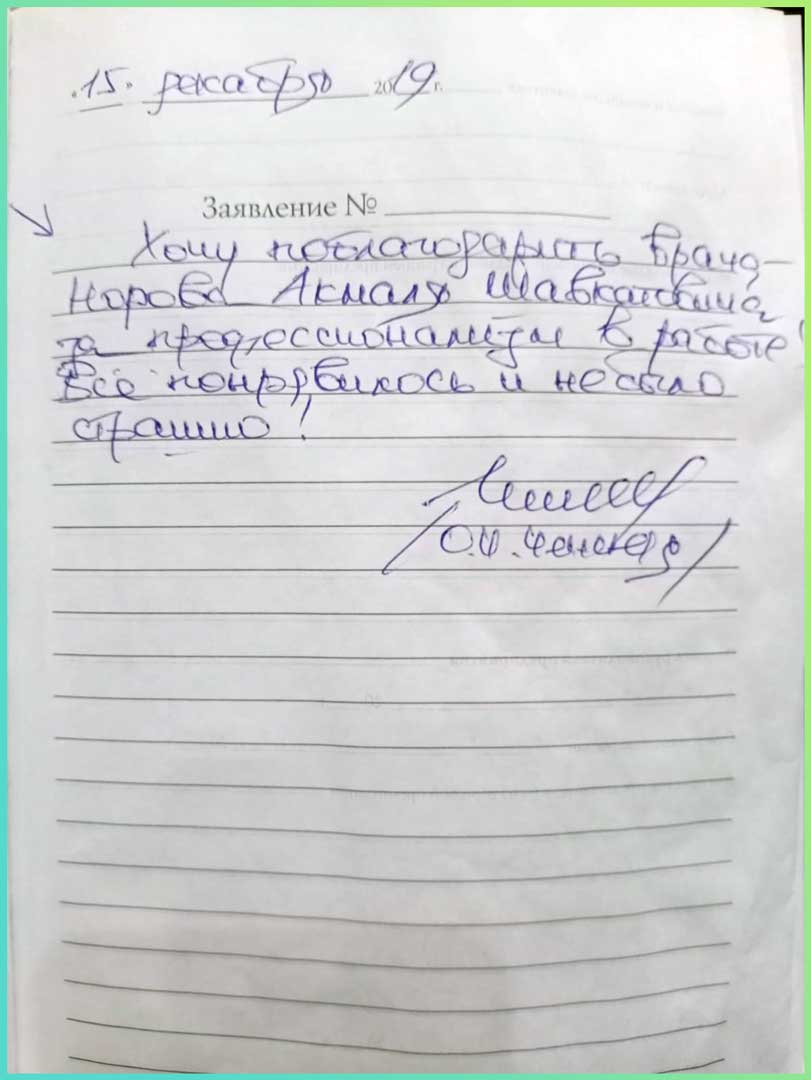 «15» декабря 2019 г.
Заявление №
Хочу поблагодарить врача-
Норова Акмаля Шавкатовича
за профессионализм в работе!
Всё понравилось и не было
страшно!